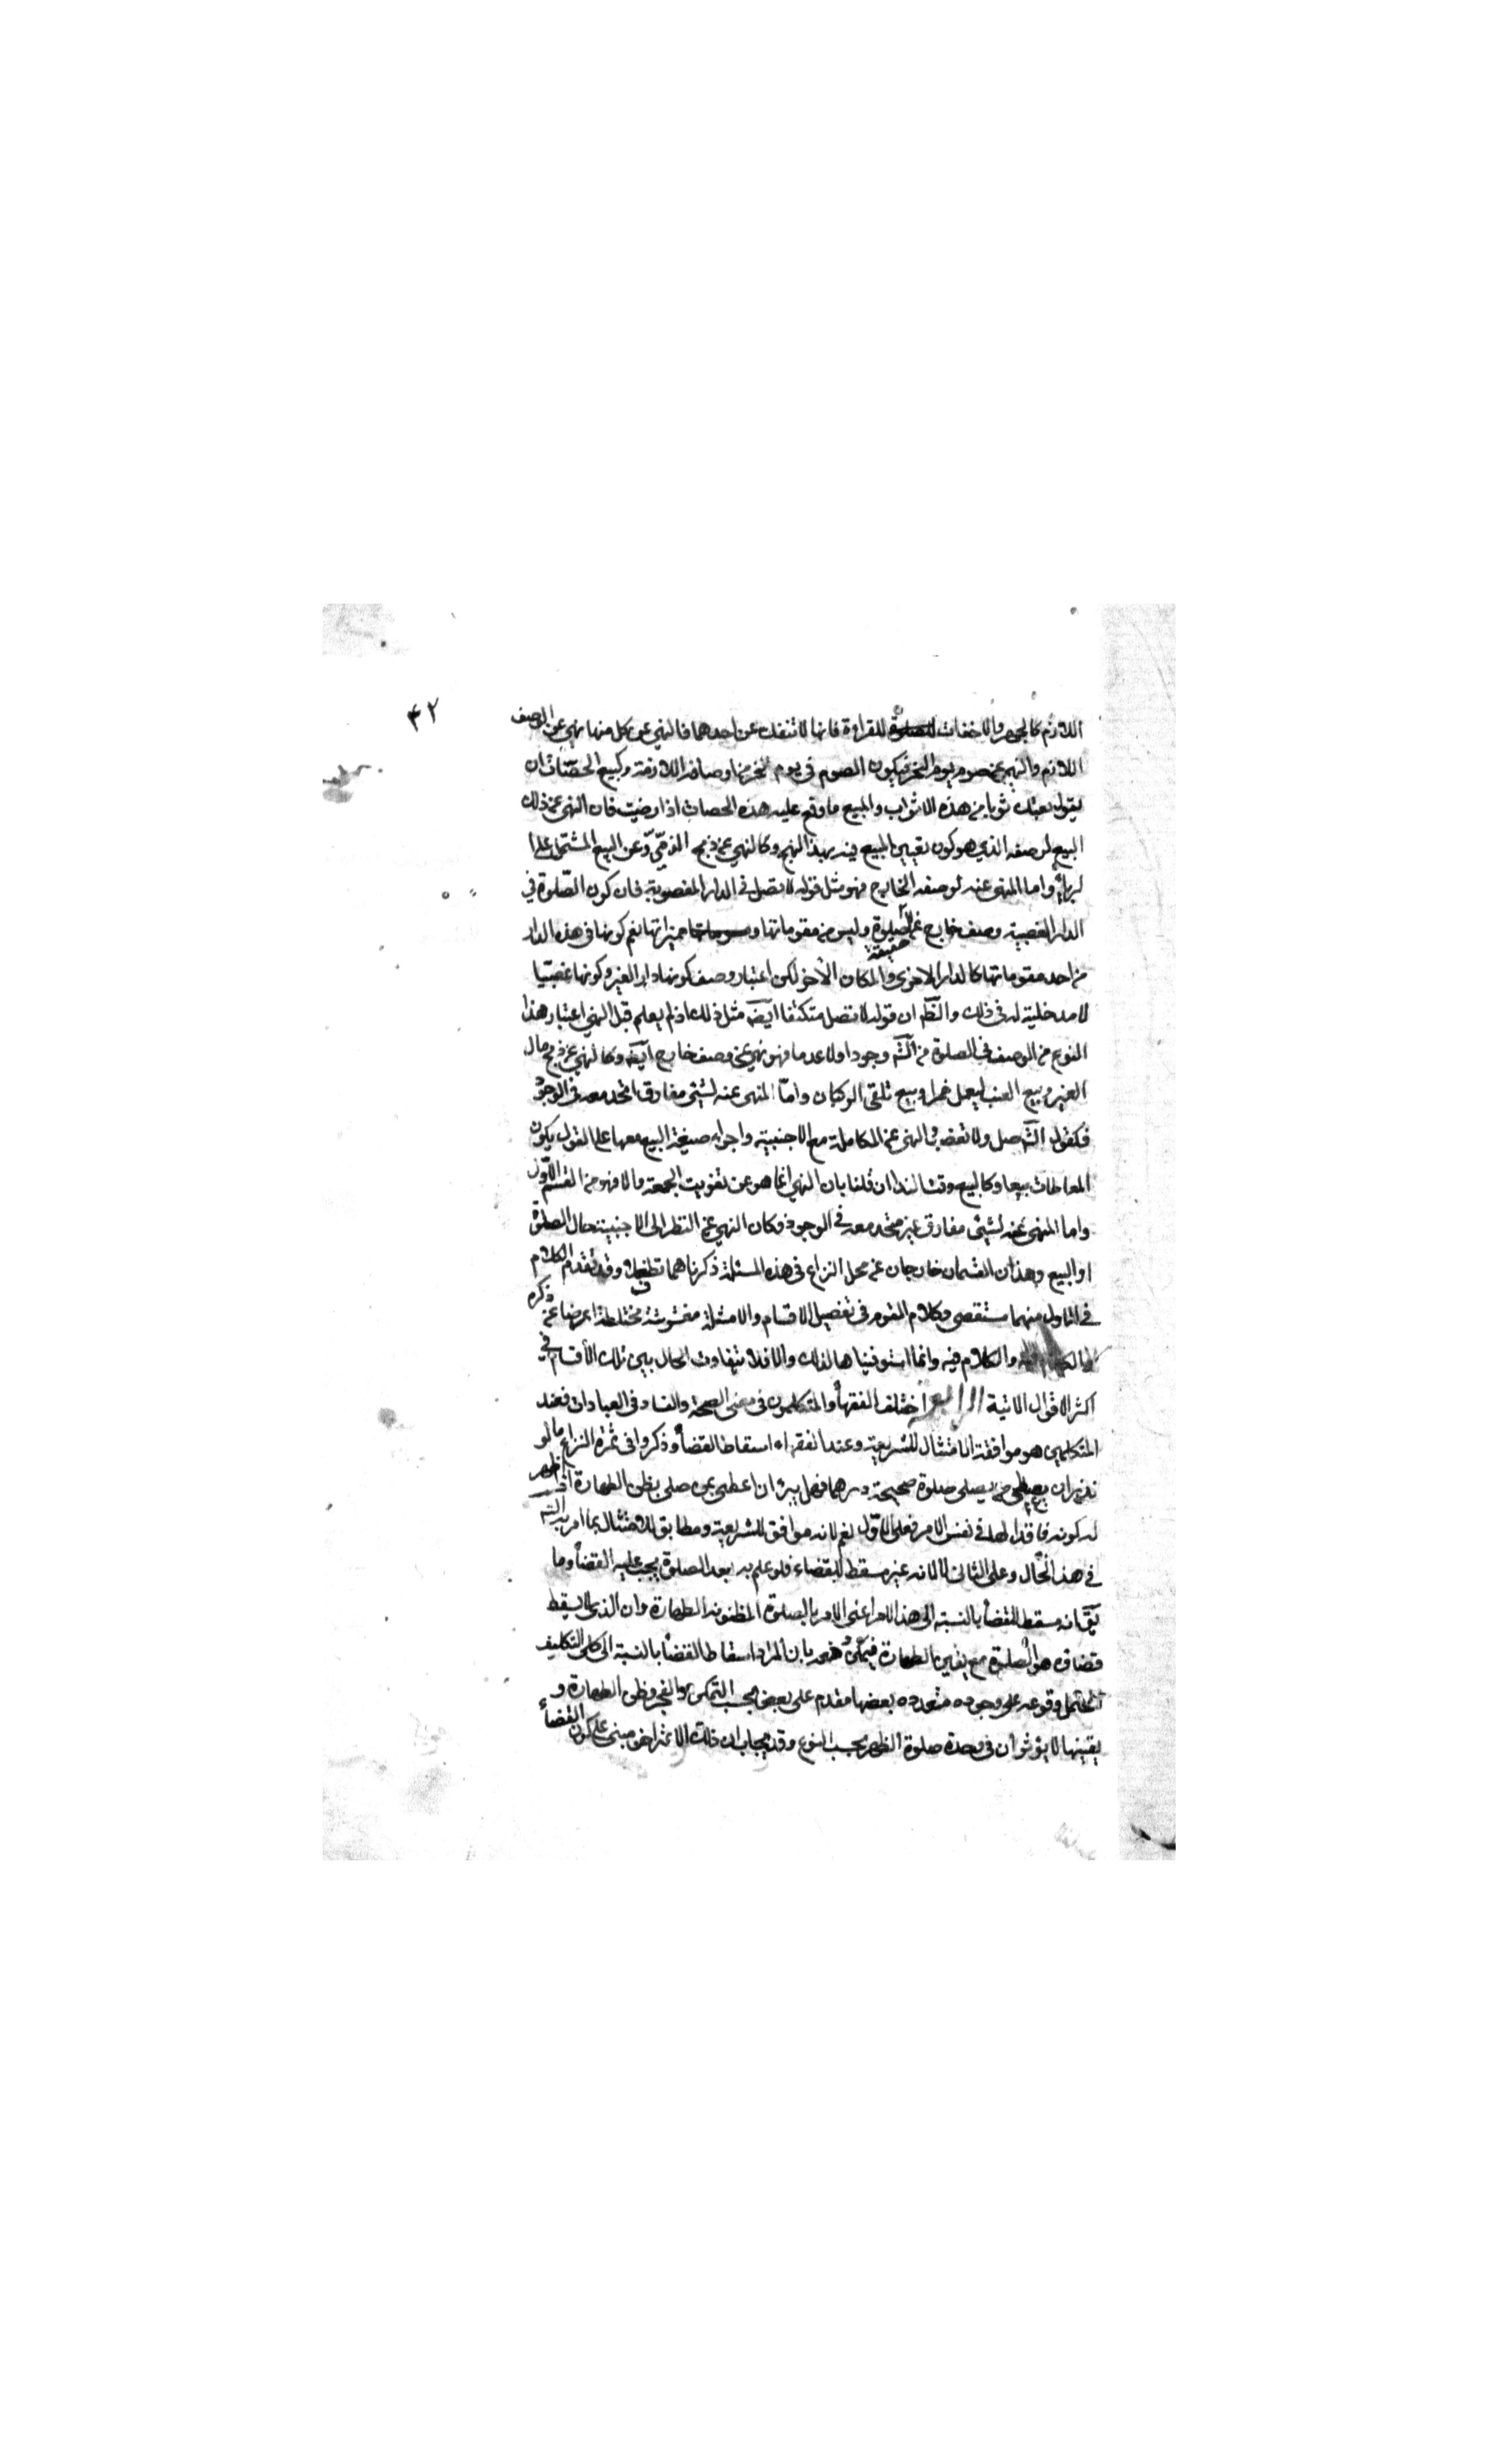 ٤٢
اللازم كالجهر والاخفات للقراءة فانها لا تنفك عن احدهما فالنهى عن كل منها نهى عن الوصف
اللازم والنهى عن صوم يوم النحر فيكون الصوم فى يوم النحر من اوصافه اللازمة وكبيع الحصاة ان
يقول بعتك ثوبا من هذه الاثواب والمبيع ما وقع عليه هذه الحصاة اذا رميت فان النهى عن ذلك
البيع لوصفه الذى هو كون تعيين المبيع فيه بهذا النهج وكالنهى عن ذبح الذمى وعن البيع المشتمل على ا
لربا واما المنهى عنه لوصفه الخارج فهو مثل قوله لا تصل فى الدار المغصوبة فان كون الصلوة فى
الدار الغصبية وصف خارج عن الصلوة وليس من مقوماتها ومميزاتها نعم كونها فى هذه الدار حقيقة
من احد مقوماتها كالدار الاخرى والمكان الاخر لكن اعتبار وصف كونها دار الغير وكونها غصبيا
لا مدخلية له فى ذلك والظ ان قوله لا تصل متكتفا ايضا مثل ذلك اذ لم يعلم قبل النهى اعتبار هذا
النوع من الوصف فى الصلوة من الش وجودا ولا عدما فهو نهى عن وصف خارج ايضا وكالنهى عن ذبح مال
الغير وبيع العنب ليعمل خمرا وبيع تلقى الركبان واما المنهى عنه لشيئ مفارق اتحد معه فى الوجود
فكقول الش صل ولا تغصب والنهى عن المكالمة مع الاجنبية واجراء صيغة البيع معها على القول بكون
المعاطات بيعا وكالبيع وقت النداء ان قلنا بان النهى انما هو عن تفويت الجمعة والا فهو من القسم الاول
واما المنهى عنه لشيئ مفارق غير متحد معه فى الوجود فكان النهى عن النظر الى الاجنبية حال الصلوة
او البيع وهذان القسمان خارجان عن محل النزاع فى هذه المسئلة ذكرناهما تطفلا وقد تقدم الكلام
فى الاول منهما مستقصى وكلام القوم فى تفصيل الاقسام والامثلة مغشوشة مختلطة اعرضنا عن ذكره
والكلام فيه وانما استوفيناها لذلك والا فلا يتفاوت الحال بين تلك الأقسام فى
اكثر الاقوال الاتية الرابع اختلف الفقهاء والمتكلمون فى معنى الصحة والفساد فى العبادات فعند
المتكلمين هو موافقة الامتثال للشريعة وعند الفقهاء اسقاط القضاء وذكروا فى ثمرة النزاع ما لو
نذر ان يعطى من يصلى صلوة صحيحة درهما فهل يبرء ان اعطى بمن صلى بظن الطهارة اذا ظهر
له كونه فاقدا لها فى نفس الامر فعلى الاول نعم لانه موافق للشريعة ومطابق للامتثال بما امر به الش
فى هذا الحال وعلى الثانى لا لانه غير مسقط للقضاء فلو علم به بعد الصلوة يجب عليه القضاء وما
يق انه مسقط للقضاء بالنسبة الى هذا الامر اعنى الامر بالصلوة المظنونة الطهارة وان الذى لا يسقط
قضاؤه هو الصلوة مع يقين الطهارة فيمكن دفعه بان المراد اسقاط القضاء بالنسبة الى كلى التكليف
المحتمل وقوعه على وجوه متعددة بعضها مقدم على بعض بحسب التمكن والعجز وظن الطهارة و
يقينها لا يؤثران فى وحدة صلوة الظهر بحسب النوع وقد يجاب ان ذلك الاعتراض مبنى على كون القضاء